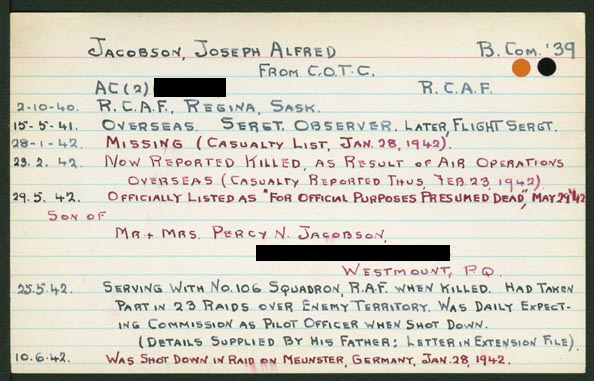 JACOBSON, JOSEPH ALFRED B. COM. '39
FROM C.O.T.C.
AC (2) R.C.A.F.
2-10-40. R.C.A.F., REGINA, SASK.
15-5-41. OVERSEAS. SERGT. OBSERVER. LATER, FLIGHT SERGT.
28-1-42. MISSING (CASUALTY LIST, JAN. 28, 1942).
23.2.42. NOW REPORTED KILLED, AS RESULT OF AIR OPERATIONS
OVERSEAS (CASUALTY REPORTED THUS, FEB. 23, 1942).
29.5.42. OFFICIALLY LISTED AS "FOR OFFICIAL PURPOSES PRESUMED DEAD", MAY 29th/42
SON OF
MR. + MRS. PERCY N. JACOBSON,
WESTMOUNT, P.Q.
25.5.42. SERVING WITH NO. 106 SQUADRON, R.A.F. WHEN KILLED. HAD TAKEN
PART IN 23 RAIDS OVER ENEMY TERRITORY. WAS DAILY EXPECT-
ING COMMISSION AS PILOT OFFICER WHEN SHOT DOWN.
(DETAILS SUPPLIED BY HIS FATHER: LETTER IN EXTENSION FILE).
10.6.42. WAS SHOT DOWN IN RAID ON MEUNSTER, GERMANY, JAN. 28, 1942.